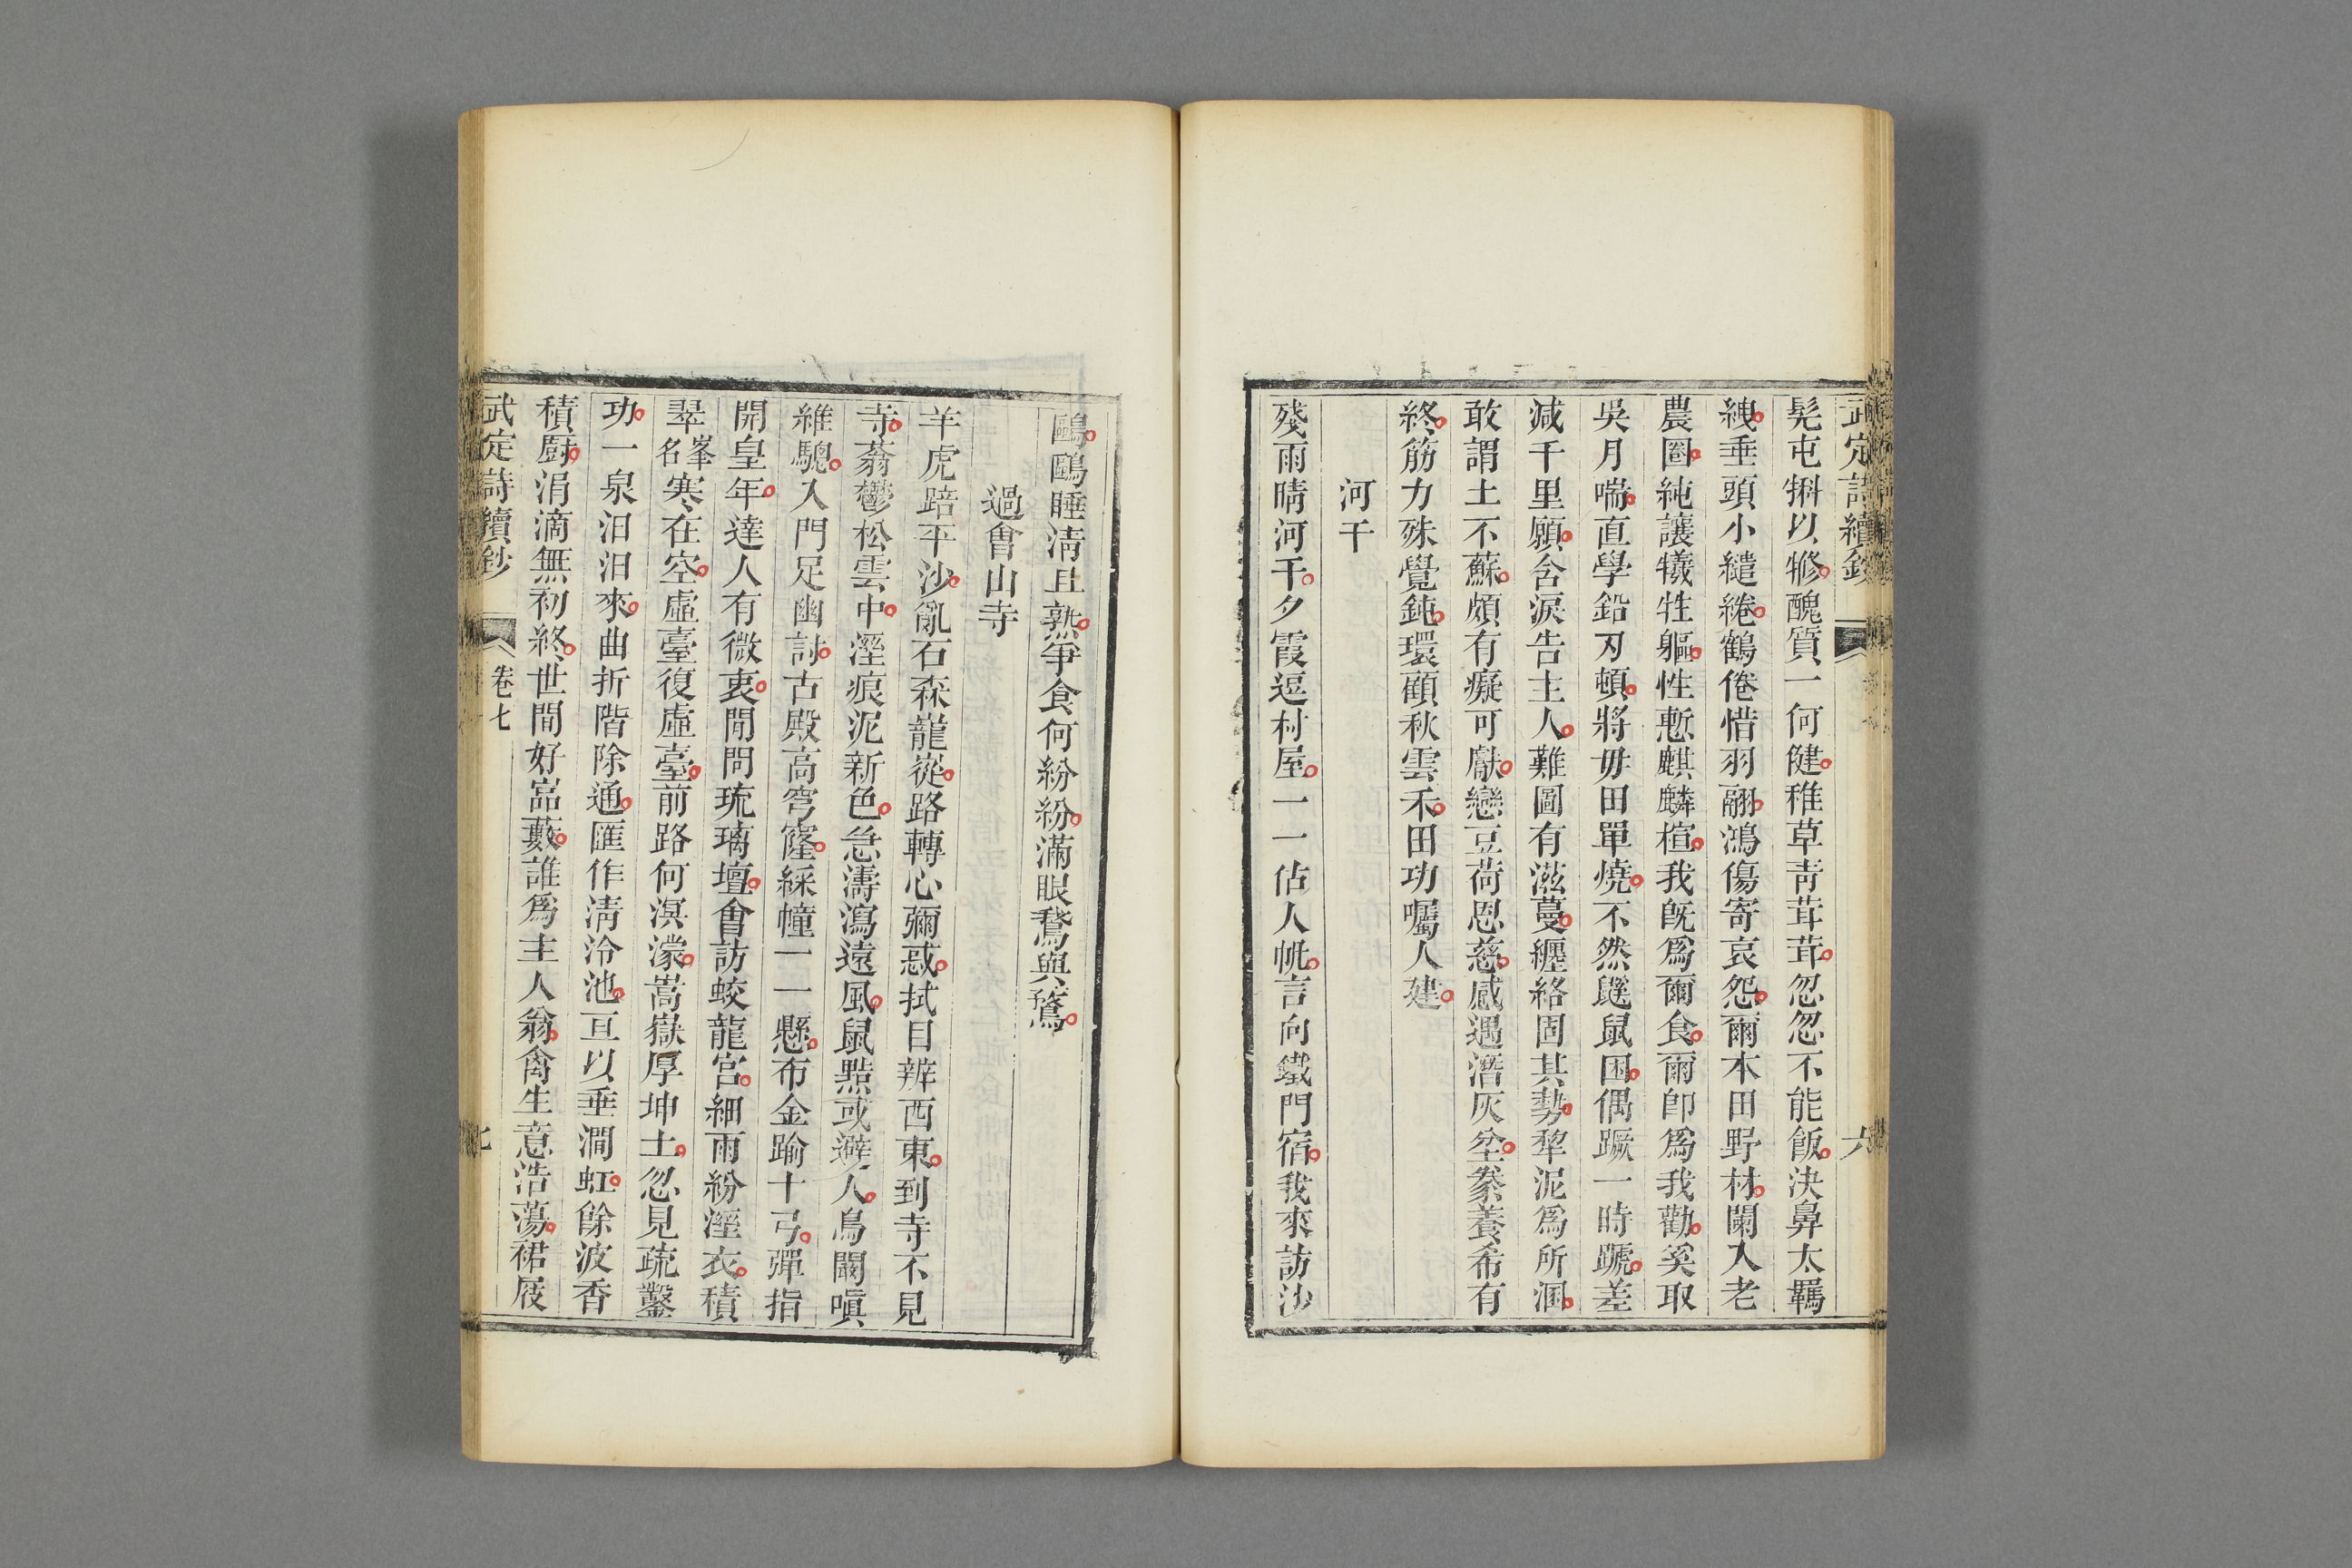 武定詩續鈔
六
髡屯犐以犙醜質一何健稚草靑茸茸忽忽不能飯決鼻太羈
絏垂頭小繾綣鶴倦惜羽翮鴻傷寄哀怨爾本田野材闌入老
農圈純讓犧牲軀性慙麒麟楦我旣爲爾食爾卽爲我勸奚取
吳月喘直學鉛刃頓將毋田單燒不然鼷鼠困偶蹶一時蹏差
減千里願含淚告主人難圖有滋蔓纒絡固其勢犂泥爲所溷
敢謂土不蘇頗有癡可獻戀豆荷恩慈感遇濳灰坌豢養希有
終筋力殊覺鈍環顧秋雲禾田功囑人建
河干
殘雨晴河干夕霞逗村屋一一估人帆言向鐵門宿我來訪沙
鷗鷗睡淸且熟爭食何紛紛滿眼鶖與鶩
過會山寺
羊虎踣平沙亂石森巃嵷路轉心彌惑拭目辨西東到寺不見
寺蓊鬱松雲中溼痕泥新色急濤瀉遠風鼠黠或避人鳥闞嗔
維驄入門足幽討古殿高穹窿綵幢一一懸布金踰十弓彈指
開皇年達人有微衷閒問琉璃壇會訪蛟龍宮細雨紛溼衣積
翠峯名寒在空虛臺復虛臺前路何溟濛嵩嶽厚坤土忽見疏鑿
功一泉汩汩來曲折階除通匯作淸泠池亙以垂澗虹餘波香
積廚涓滴無初終世間好嵓藪誰爲主人翁禽生意浩蕩裙屐
武定詩續鈔
卷七
七